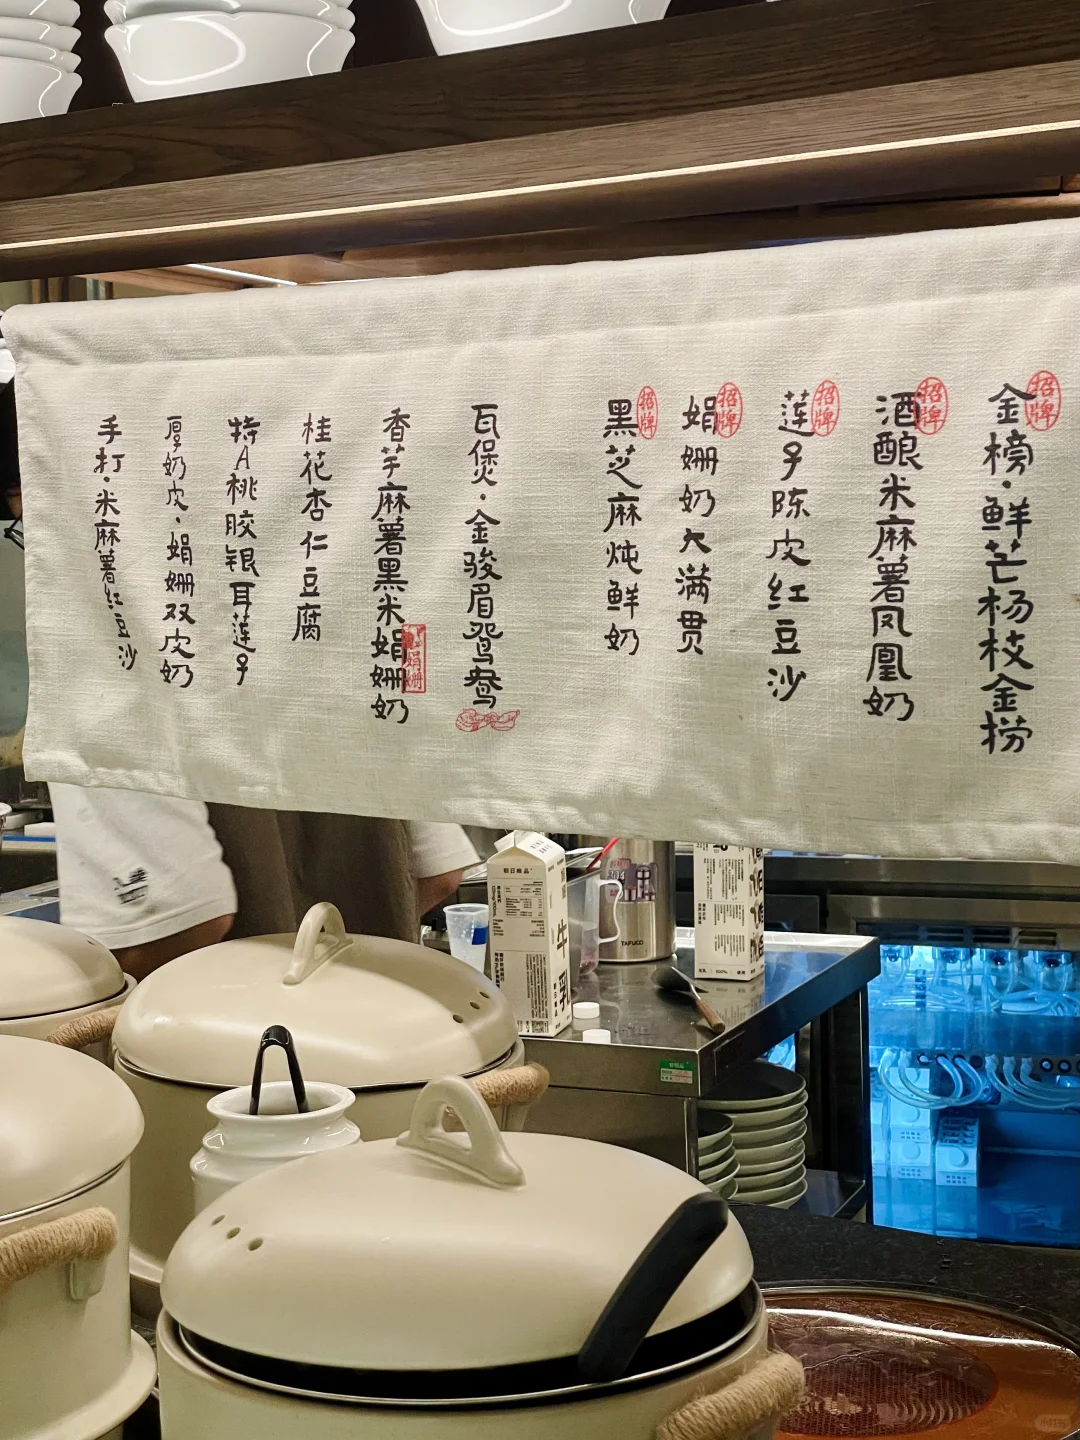 招牌
金榜·鲜芒杨枝金捞
招牌
酒酿米麻薯凤凰奶
招牌
莲子陈皮红豆沙
招牌
娟姗奶大满贯
招牌
黑芝麻炖鲜奶
瓦煲·金骏眉鸳鸯
香芋麻薯黑米娟姗奶
娟姗
桂花杏仁豆腐
特A桃胶银耳莲子
厚奶皮·娟姗双皮奶
手打·米麻薯红豆沙
牛乳
TAFUCO
小红书